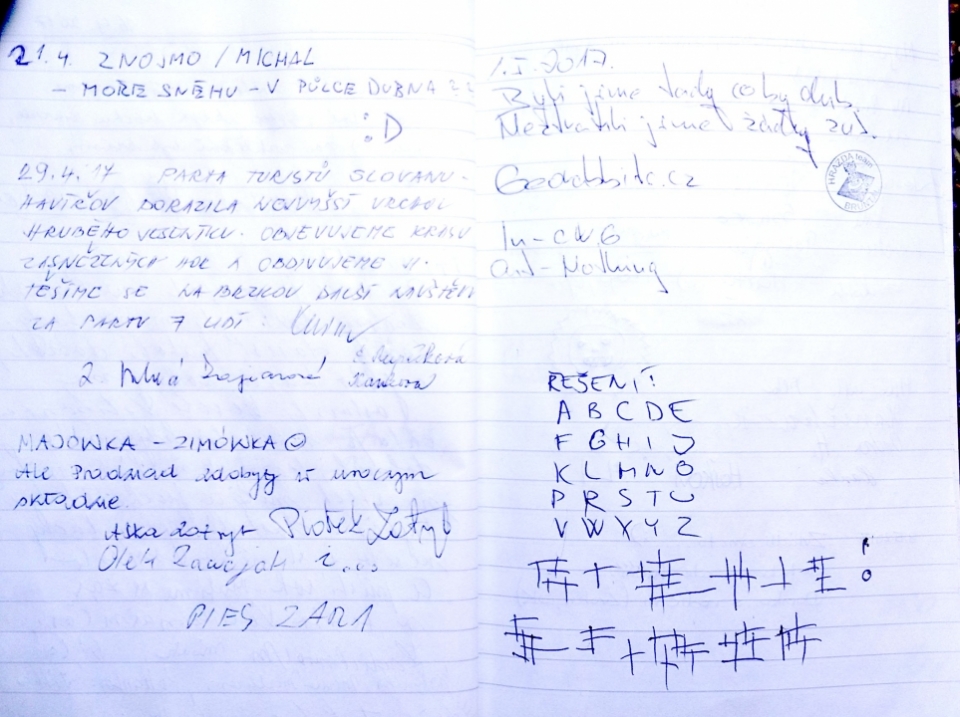 21.4. ZNOJMO / MICHAL
- MOŘE SNĚHU - V PŮLCE DUBNA
:D
29.4.17 PARTA TURISTŮ SLOVANU-
HAVÍŘOV DORAZILA NEJVYŠŠÍ VRCHOL
HRUBÉHO JESENÍKU. OBJEVUJEME KRÁSU
ZASNĚŽENÝCH HOR A OBDIVUJEME JI.
TĚŠÍME SE NA BRZKOU DALŠÍ NÁVŠTĚVU
ZA PARTU 7 LIDÍ:
MAJÓWKA - ZIMÓWKA ☺
Ale Pradziad zdobyty w uroczym
składzie.
Aśka Piotrek
Olek i
PIES ZARA
1.5.2017.
Byli jsme tady coby dub.
Neztratili jsme žádný zub.
In-CNG
Out-Nothing
ŘEŠENÍ:
A B C D E
F G H I J
K L M N O
P R S T U
V W X Y Z